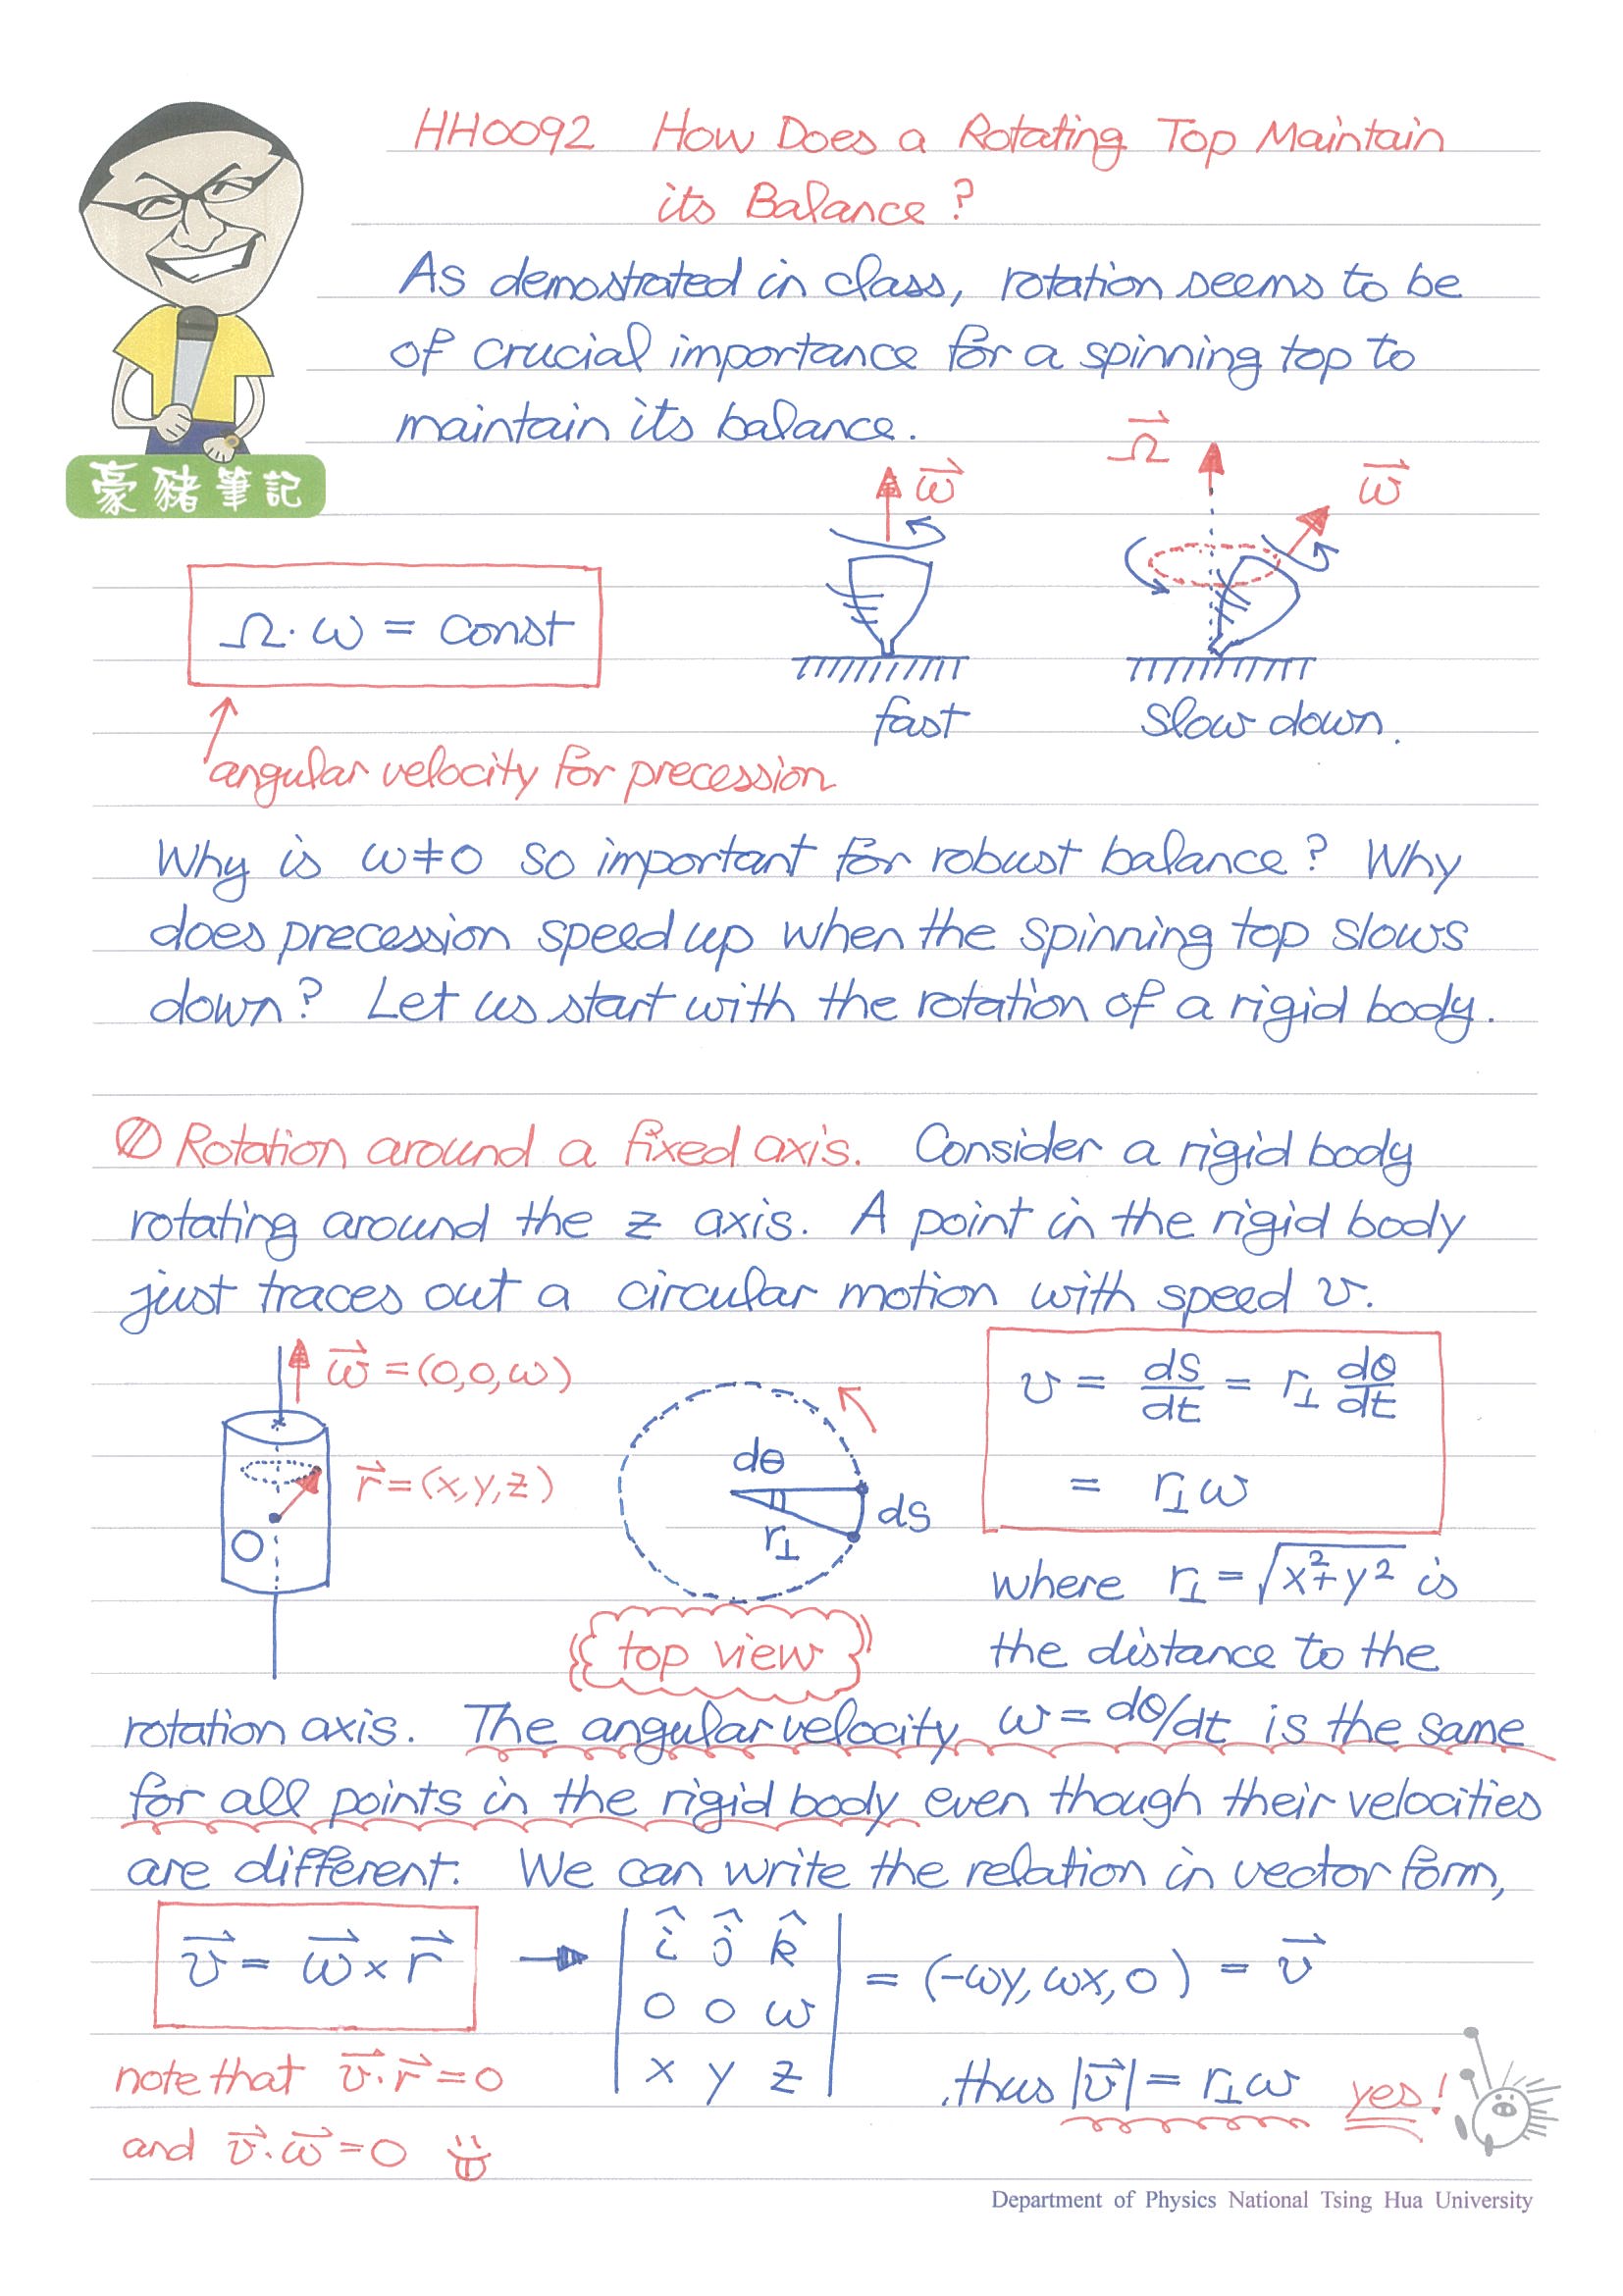 HH0092 How Does a Rotating Top Maintain
its Balance?
As demostrated in class, rotation seems to be
of crucial importance for a spinning top to
maintain its balance.
豪豬筆記
Ω⃗
ω⃗
ω⃗
Ω·ω = const
fast
slow down.
angular velocity for precession
Why is ω≠0 so important for robust balance? Why
does precession speed up when the spinning top slows
down? Let us start with the rotation of a rigid body.
① Rotation around a fixed axis. Consider a rigid body
rotating around the z axis. A point in the rigid body
just traces out a circular motion with speed v.
ω⃗ = (0,0,ω)
r⃗ = (x,y,z)
O
dθ
r⊥
ds
top view
v = ds/dt = r⊥ dθ/dt
= r⊥ω
where r⊥ = √x²+y² is
the distance to the
rotation axis. The angular velocity ω = dθ/dt is the same
for all points in the rigid body even though their velocities
are different. We can write the relation in vector form,
v⃗ = ω⃗ × r⃗ → | î ĵ k̂ |
| 0 0 ω | = (-ωy, ωx, 0) = v⃗
| x y z |
note that v⃗·r⃗ = 0
and v⃗·ω⃗ = 0
thus |v⃗| = r⊥ω yes!
Department of Physics National Tsing Hua University